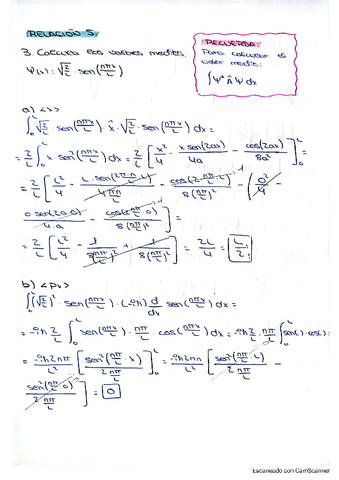 RELACIÓN 5.
3. Calcula los valores medios.
Ψ(x) = √(2/L) · sen(nπx/L)
RECUERDA:
Para calcular el
valor medio:
∫Ψ* Â Ψ dx
a) <x>
∫₀ᴸ √(2/L) sen(nπx/L) · x̂ · √(2/L) · sen(nπx/L) dx =
= 2/L ∫₀ᴸ x · sen²(nπx/L) dx = 2/L [x²/4 - x sen(2ax)/4a - cos(2ax)/8a²]₀ᴸ =
= 2/L [L²/4 - L · sen(2 nπ/L · L)/(4 nπ/L) - cos(2 nπ/L · L)/(8(nπ/L)²) - (0²/4 -
0 sen(2a·0)/4·a - cos(2 nπ/L · 0)/(8(nπ/L)²)] =
= 2/L [L²/4 - 1/(8(nπ/L)²) + 1/(8(nπ/L)²)] = 2L/4 = L/2
b) <px>
∫₀ᴸ (√(2/L))² · sen(nπx/L) · (-iħ) d/dx sen(nπx/L) =
= -iħ 2/L ∫₀ᴸ sen(nπx/L) · nπ/L · cos(nπx/L) dx = -iħ 2/L · nπ/L ∫₀ᴸ sen() · cos() =
= -iħ2nπ/L² [sen²(nπ/L · x)/(2 nπ/L)]₀ᴸ = -iħ2nπ/L² [sen²(nπ/L · L)/(2 nπ/L) -
sen²(nπ/L · 0)/(2 nπ/L)] = 0
Escaneado con CamScanner